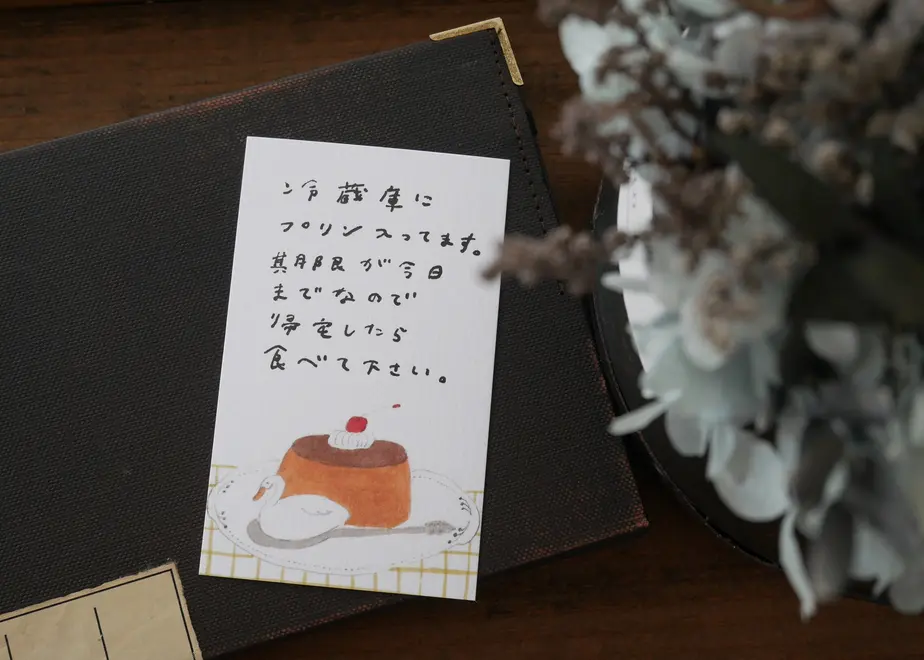 冷蔵庫に
プリン入ってます。
期限が今日
までなので
帰宅したら
食べて下さい。